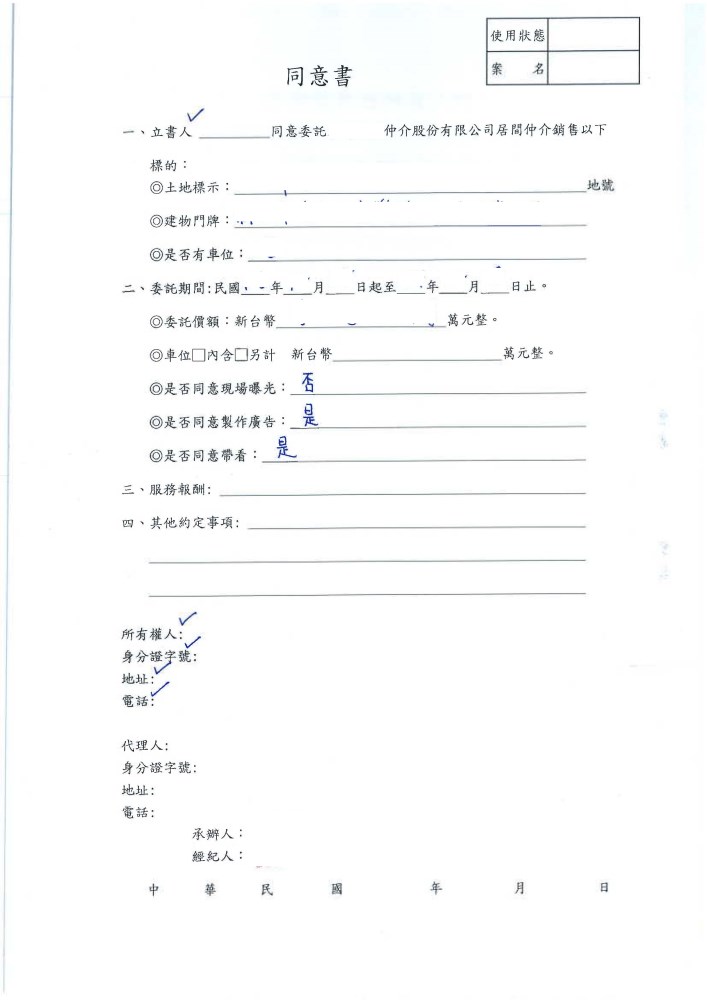 使用狀態
案 名
同意書
一、立書人 ✓ ________同意委託 仲介股份有限公司居間仲介銷售以下
標的：
◎土地標示：________地號
◎建物門牌：________
◎是否有車位：________
二、委託期間:民國____年____月____日起至____年____月____日止。
◎委託價額：新台幣________萬元整。
◎車位□內含□另計 新台幣________萬元整。
◎是否同意現場曝光：否
◎是否同意製作廣告：是
◎是否同意帶看：是
三、服務報酬:________
四、其他約定事項:________
所有權人: ✓
身分證字號: ✓
地址: ✓
電話: ✓
代理人:
身分證字號:
地址:
電話:
承辦人：
經紀人：
中 華 民 國 年 月 日